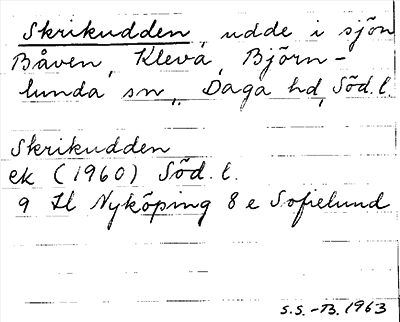 Skrikudden, udde i sjön
Båven, Kleva, Björn-
lunda sn, Daga hd, Söd. l.
Skrikudden
ek (1960) Söd. l.
9 Il Nyköping 8 e Sofielund
S.S.-B. 1963